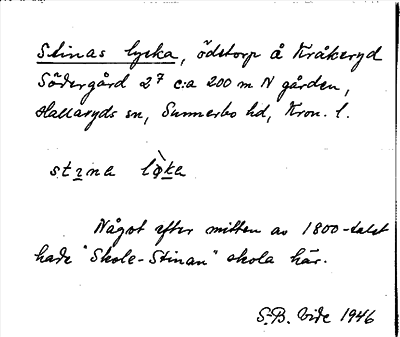 Stinas lycka, ödetorp å Kråkeryd
Södergård 2⁷ c:a 200 m N gården,
Hallaryds sn, Sunnerbo hd, Kron. l.
stina lø̀ka
Något efter mitten av 1800-talet
hade "Skole-Stinan" skola här.
S.B. Vide 1946